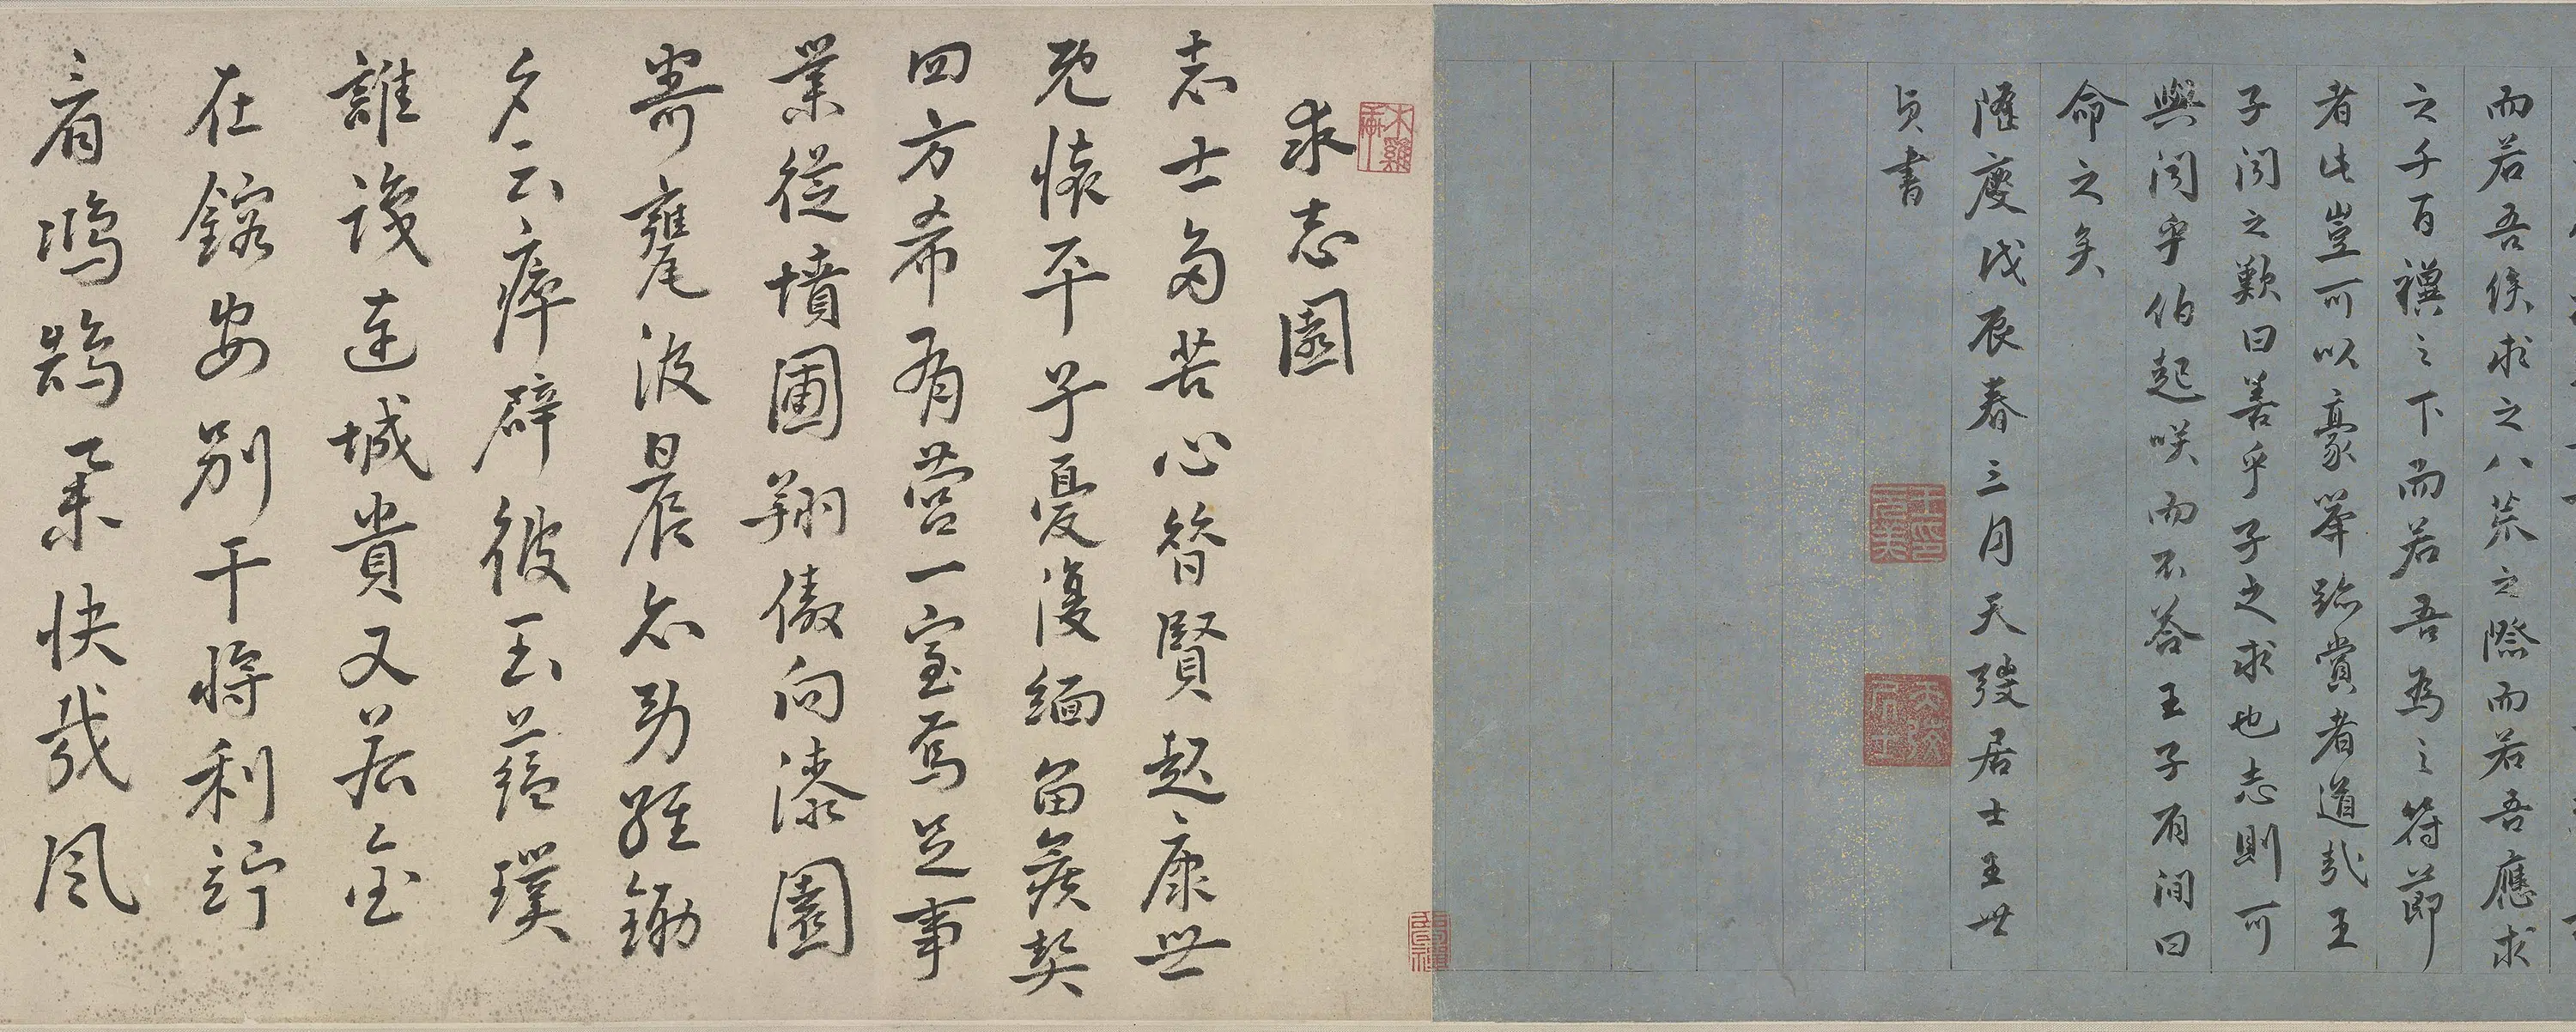 而若吾俟求之八荒之際而若吾應求
之千百禩之下而若吾為之符節
者此豈可以豪舉跡賞者道哉王
子聞之歎曰善乎子之求也志則可
與聞乎伯起咲而不答王子有間曰
命之矣
隆慶戊辰春三月天弢居士王世
貞書
求志園
志士多苦心昔賢起康世
既懷平子憂復緬留矦契
四方希有營一室焉足事
業從墳圃翔傲向漆園
寄甕尾波晨忘劬經鋤
夕云瘁辟彼玉蘊璞
誰識連城貴又若金
在鎔安別干將利竚
看鴻鵠業快哉風